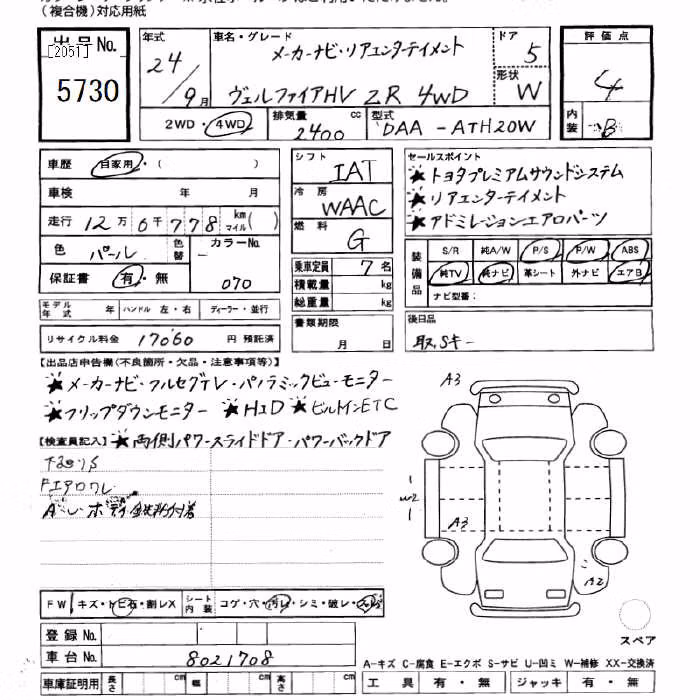 (複合機)対応用紙
出品No.
[2051]
5730
年式
24/9月
車名・グレード
メーカーナビ・リアエンターテイメント
ヴェルファイアHV ZR 4WD
ドア
5
形状
W
評価点
4
内装
B
2WD・4WD
排気量 cc
2400
型式
DAA-ATH20W
車歴 自家用・( )
車検 年 月
走行 12万6千778 km マイル( )
色 パール 色替
カラーNo.
070
保証書 有・無
モデル年式 年 ハンドル 左・右 ディーラー・並行
リサイクル料金 17060 円 預託済
シフト IAT
冷房 WAAC
燃料 G
乗車定員 7名
積載量 kg
総重量 kg
書類期限
月 日
セールスポイント
★トヨタプレミアムサウンドシステム
★リアエンターテイメント
★アドミレーションエアロパーツ
装備品
S/R 純A/W P/S P/W ABS
純TV 純ナビ 革シート 外ナビ エアB
ナビ型番:
後日品
取、Sキー
【出品店申告欄(不良箇所・欠品・注意事項等)】
★メーカーナビ・フルセグTV・パノラミックビューモニター
★フリップダウンモニター ★HID ★ビルトインETC
【検査員記入】★両側パワースライドドア・パワーバックドア
下回りS
Fエアロワレ
ボディ鉄粉付着
A3
W2
A3
A2
スペア
FW キズ・トビ石・割レX シート内装 コゲ・穴・汚レ・シミ・破レ・
登録No.
車台No. 8021708
車庫証明用 長さ cm 幅 cm 高さ cm
A-キズ C-腐食 E-エクボ S-サビ U-凹ミ W-補修 XX-交換済
工具 有・無 ジャッキ 有・無